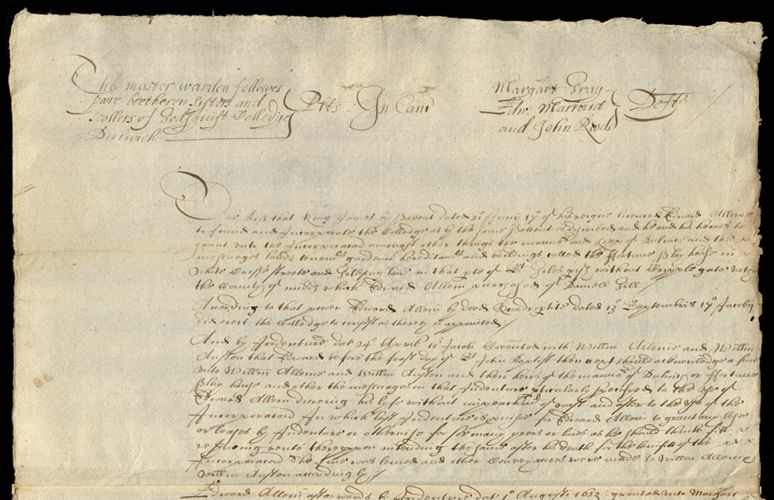 The master warden fellowes
pore bretheren sisters and
scollers of Godsguift Colledge
Dulwich
Plts In Canc
Margart Gray
Edw. Marrant
and John Roch
Defts
The Bill that King James by Pattent dated 21 Junij 17 of his reigne licenced Edward Allone
to found and Incorporate the Colledge as by the same Pattent is discribed and he and his heires to
grant unto the Incorporated amongst other things the mannor and of Dulwich and the
messuages lands tenemts gardens hereditamts and buildings called the ffortune Play house in
white Crosse streete and Golding lane in that pte of St Giles psh without Creplegate with in
the County of Middx which Edward Allen purchased of Daniell Gill
According to that power Edward Allen by deed Quadruptite dated 13 September 17 Jacobij
did erect the Colledge to consist as therein is appointed
And by Indenture dat 24 Aprill Jacob Covented with Willm Allonie and Willm
Auston that Edward before the feast day of St John Baptist then next should acknowledge a fine
unto Willm Allonie and Willm Auston and their heires of the mannor of Dulwich ffortune
Play house and other the messuages in that Indenture pticularly to the use of
Edward Allen dureing his life without impeachmt of wast and after to the use of the
Incorporated In which last Indenture is pvision for Edward Allen to grant any lease
or leases by Indenture or otherwise for soe many yeares or lives as he should thinke fitt
reserving rents thereupon intending the same after his death for the benefit of the
Incorporated The fine was levied and other Conveyances were made to Willm Allonie
Willm Auston accordingly
Edward Allen afterwards by Indenture dat 1º Augusti 1623 granted unto Margart